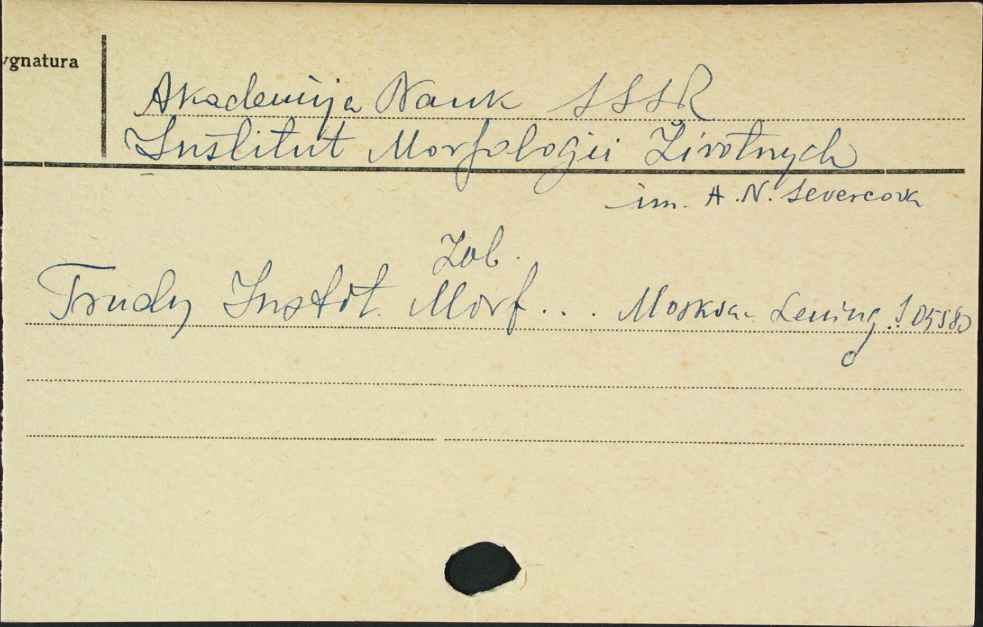 ygnatura
Akademija Nauk SSSR
Institut Morfologii Životnych
im. A. N. Severcova
Zob.
Trudy Instit. Morf... Moskva-Lening.